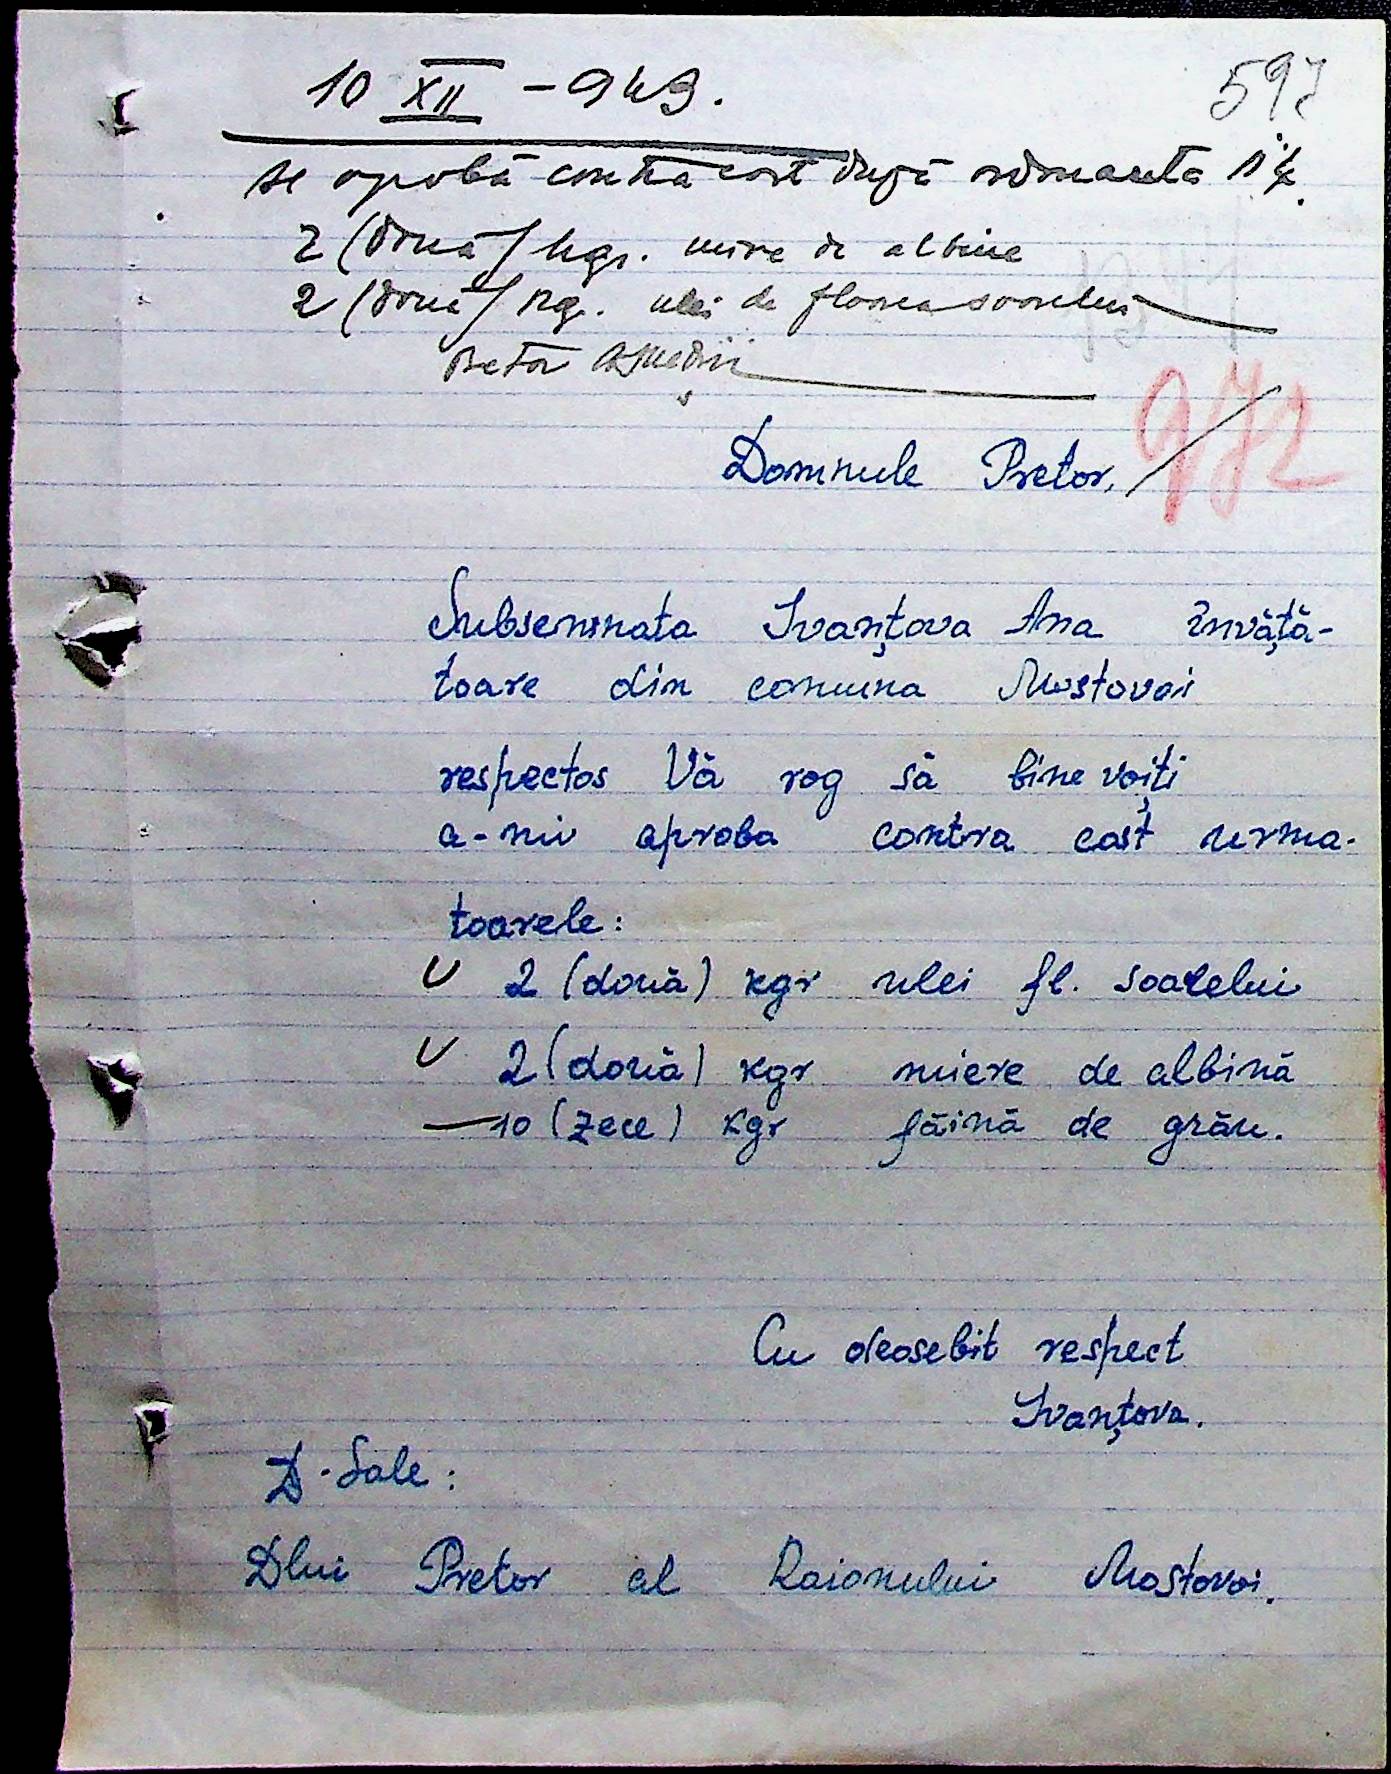 597
10 XII - 943.
se aprobă contra cost după
2 (două) kgr. miere de albine
2 (două) kg. ulei de floarea soarelui
Pretor
972
Domnule Pretor,
Subsemnata Ivanțova Ana învăță-
toare din comuna Mostovoi
respectos Vă rog să bine voiți
a-mi aproba contra cost urma-
toarele:
2 (două) kgr ulei fl. soarelui
2 (două) kgr miere de albină
10 (zece) kgr făină de grău.
Cu deosebit respect
Ivanțova.
D-Sale:
Dlui Pretor al Raionului Mostovoi.